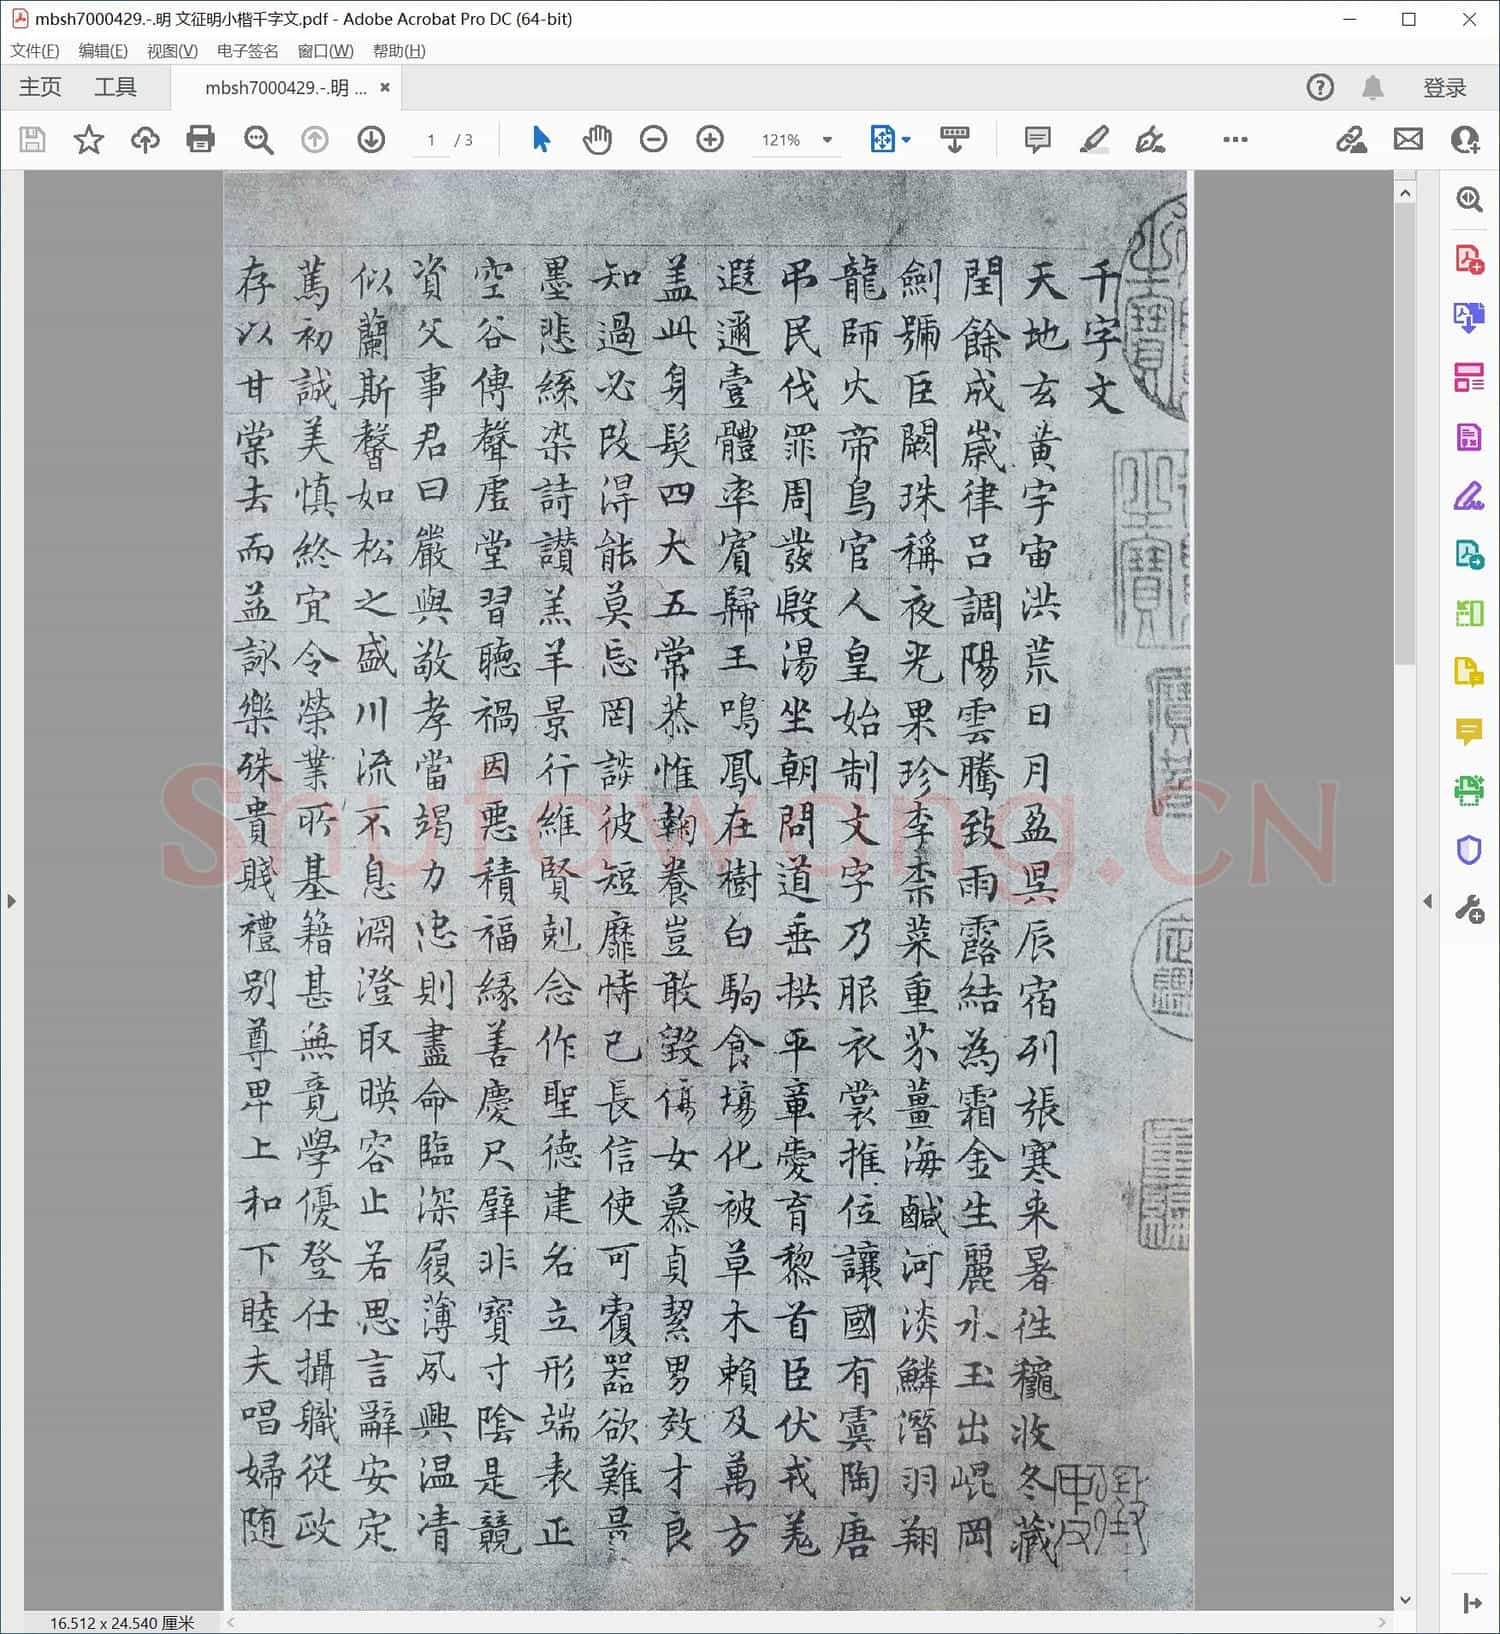 mbsh7000429.-.明 文征明小楷千字文.pdf - Adobe Acrobat Pro DC (64-bit)
文件(F) 编辑(E) 视图(V) 电子签名 窗口(W) 帮助(H)
主页 工具 mbsh7000429.-.明 ... 登录
1 / 3 121%
千字文
天地玄黄宇宙洪荒日月盈昃辰宿列張寒来暑往穐收冬藏
閏餘成歲律呂調陽雲騰致雨露結為霜金生麗水玉出崐岡
劍號臣闕珠稱夜光果珍李柰菜重芥薑海鹹河淡鱗潛羽翔
龍師火帝鳥官人皇始制文字乃服衣裳推位讓國有虞陶唐
吊民伐罪周發殷湯坐朝問道垂拱平章愛育黎首臣伏戎羌
遐邇壹體率賓歸王鳴鳳在樹白駒食場化被草木賴及萬方
盖此身髮四大五常恭惟鞠養豈敢毀傷女慕貞絜男效才良
知過必改得能莫忘罔談彼短靡恃己長信使可覆器欲難量
墨悲絲染詩讃羔羊景行維賢剋念作聖德建名立形端表正
空谷傳聲虛堂習聽禍因惡積福緣善慶尺璧非寶寸陰是競
資父事君曰嚴與敬孝當竭力忠則盡命臨深履薄夙興温凊
似蘭斯馨如松之盛川流不息淵澄取暎容止若思言辭安定
篤初誠美慎終宜令榮業所基籍甚無竟學優登仕攝職從政
存以甘棠去而益詠樂殊貴賤禮别尊卑上和下睦夫唱婦随
Shufawang.CN
16.512 x 24.540 厘米